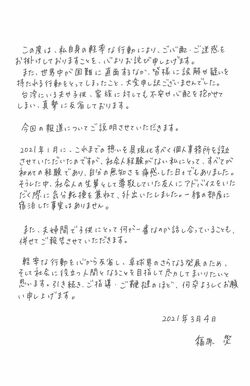 この度は、私自身の軽率な行動により、ご心配・ご迷惑を
お掛けしておりますことを、心よりお詫び申し上げます。
また、世界中が困難に直面するなか、皆様に誤解や疑いを
持たれる行動をとってしましたこと、大変申し訳ございませんでした。
台湾にいる夫や子供、家族に対しても不安や心配を抱かせて
しまい、真摯に反省しております。
今回の報道についてご説明させていただきます。
2021年1月に、これまでの想いを具現化すべく個人事務所を設立
させていただいたのですが、社会人経験がない私にとって、すべてが
初めての経験であり、自分の無知さを痛感した日々でありました。
そうした中、社会人の先輩として尊敬していた友人にアドバイスをいた
だく際に気分転換を兼ねて、外出いたしました。一緒の部屋に
宿泊した事実はありません。
また、夫婦間で子供にとって何が一番なのか話し合っていることも、
併せてご報告させていただきます。
軽率な行動を心から反省し、卓球界のさらなる発展のため、
そして社会に役立つ人間となることを目指して尽力してまいりたいと
思います。引き続き、ご指導・ご鞭撻のほど、何卒よろしくお願
い申し上げます。
2021年3月4日
福原 愛